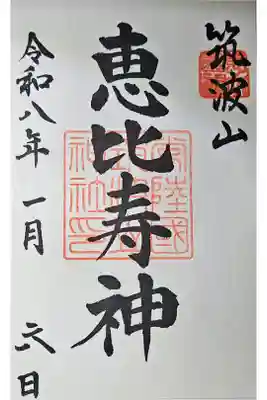 筑波山
恵比寿神
令和八年一月六日